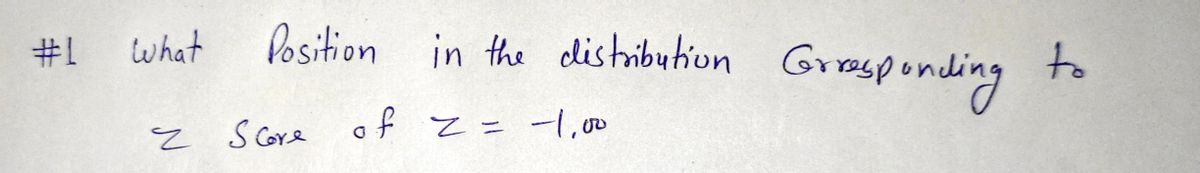 #1 What Position in the distribution Corresponding to
z Score of z = -1.00